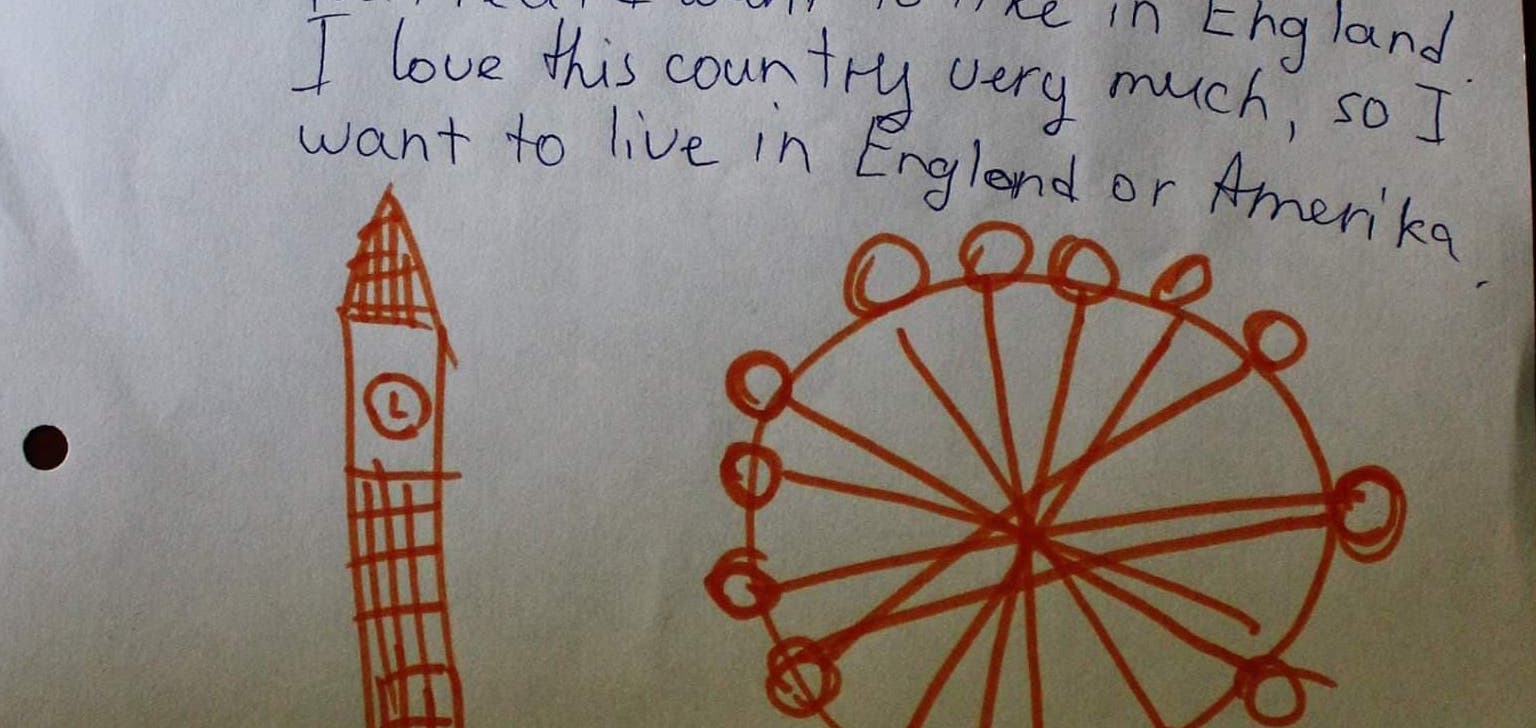 in England.
I love this country very much, so I
want to live in England or Amerika.